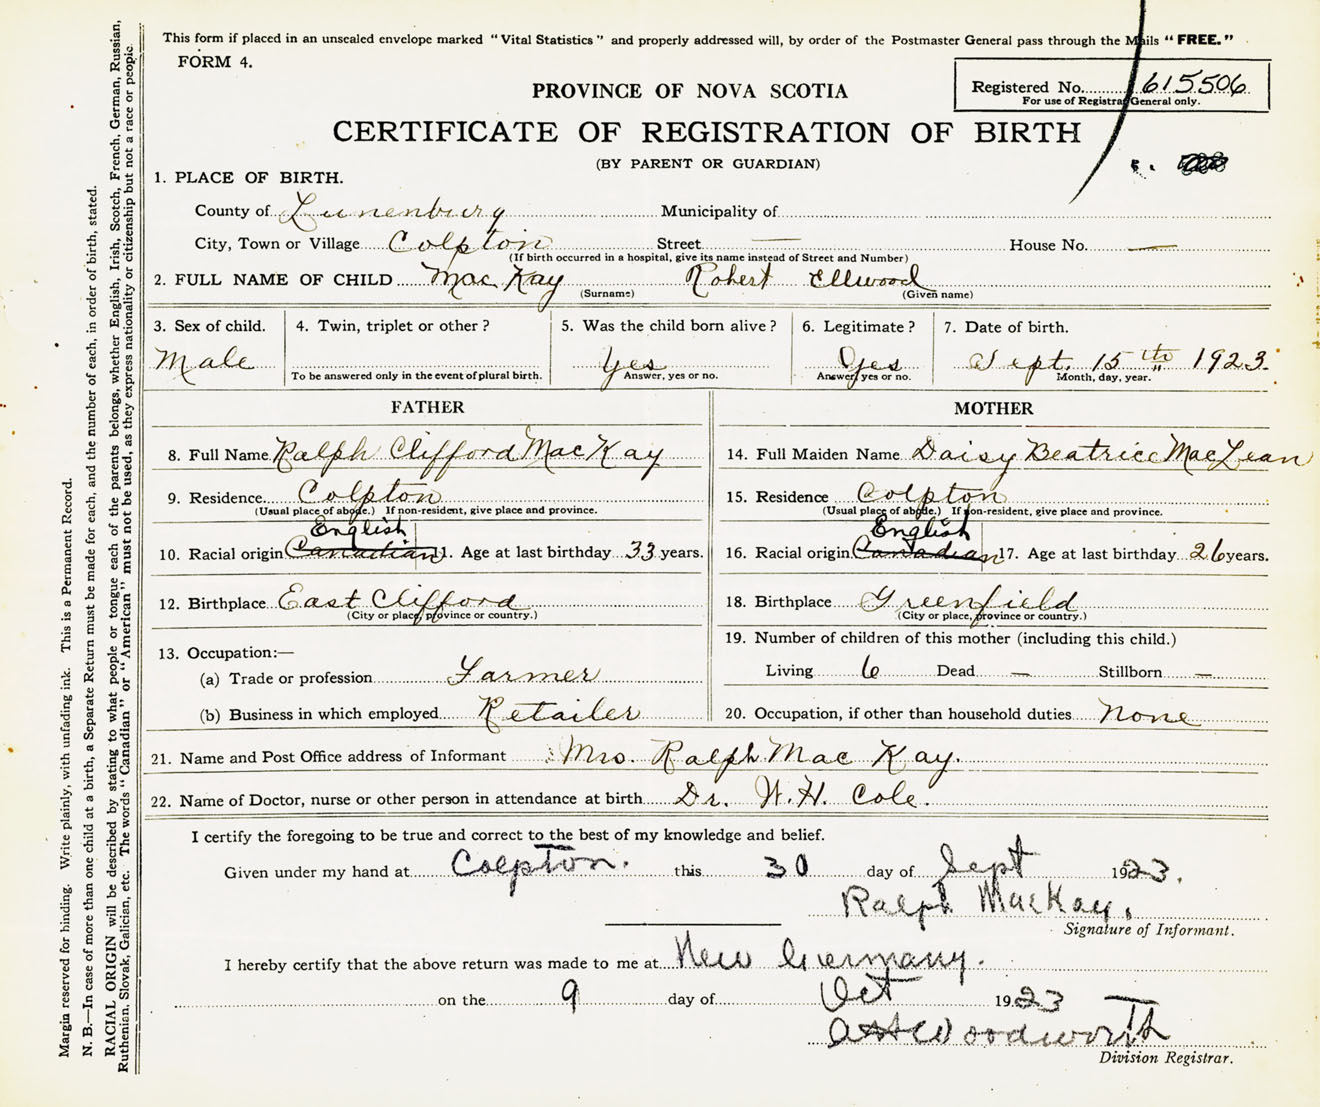 This form if placed in an unsealed envelope marked "Vital Statistics" and properly addressed will, by order of the Postmaster General pass through the Mails "FREE."
FORM 4.
Registered No. 615506
For use of Registrar General only.
PROVINCE OF NOVA SCOTIA
CERTIFICATE OF REGISTRATION OF BIRTH
(BY PARENT OR GUARDIAN)
1. PLACE OF BIRTH.
County of Lunenburg Municipality of
City, Town or Village Colpton Street — House No. —
(If birth occurred in a hospital, give its name instead of Street and Number)
2. FULL NAME OF CHILD MacKay Robert Ellwood
(Surname) (Given name)
3. Sex of child. 4. Twin, triplet or other? 5. Was the child born alive? 6. Legitimate? 7. Date of birth.
Male Yes Yes Sept. 15th 1923.
To be answered only in the event of plural birth. Answer, yes or no. Answer, yes or no. Month, day, year.
FATHER
8. Full Name Ralph Clifford MacKay
9. Residence Colpton
(Usual place of abode.) If non-resident, give place and province.
English
10. Racial origin Canadian 11. Age at last birthday 33 years.
12. Birthplace East Clifford
(City or place, province or country.)
13. Occupation:—
(a) Trade or profession Farmer
(b) Business in which employed Retailer
MOTHER
14. Full Maiden Name Daisy Beatrice MacLean
15. Residence Colpton
(Usual place of abode.) If non-resident, give place and province.
English
16. Racial origin Canadian 17. Age at last birthday 26 years.
18. Birthplace Greenfield
(City or place, province or country.)
19. Number of children of this mother (including this child.)
Living 6 Dead — Stillborn —
20. Occupation, if other than household duties None
21. Name and Post Office address of Informant Mrs. Ralph MacKay.
22. Name of Doctor, nurse or other person in attendance at birth Dr. W. H. Cole.
I certify the foregoing to be true and correct to the best of my knowledge and belief.
Given under my hand at Colpton. this 30 day of Sept 1923.
Ralph MacKay.
Signature of Informant.
I hereby certify that the above return was made to me at New Germany.
on the 9 day of Oct 1923
Woodworth
Division Registrar.
Margin reserved for binding. Write plainly, with unfading ink. This is a Permanent Record.
N. B.—In case of more than one child at a birth, a Separate Return must be made for each, and the number of each, in order of birth, stated.
RACIAL ORIGIN will be described by stating to what people or tongue each of the parents belongs, whether English, Irish, Scotch, French, German, Russian,
Ruthenian, Slovak, Galician, etc. The words "Canadian" or "American" must not be used, as they express nationality or citizenship but not a race or people.